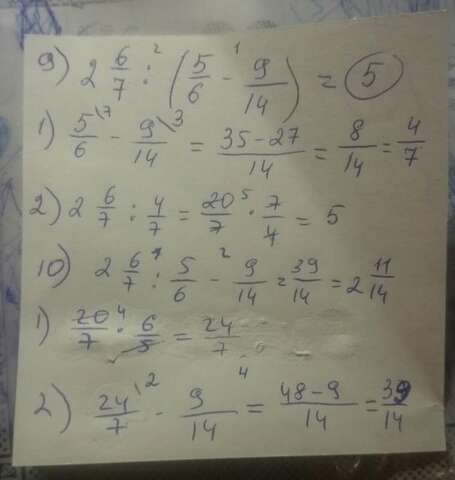 9) 2 6/7 :² (5/6 -¹ 9/14) = 5
1) 5\7/6 - 9\3/14 = 35-27/14 = 8/14 = 4/7
2) 2 6/7 : 4/7 = 20⁵/7 · 7/4 = 5
10) 2 6/7 :¹ 5/6 -² 9/14 = 39/14 = 2 11/14
1) 20⁴/7 · 6/5 = 24/7
2) 24\2/7 - 9/14 = 48-9/14 = 39/14